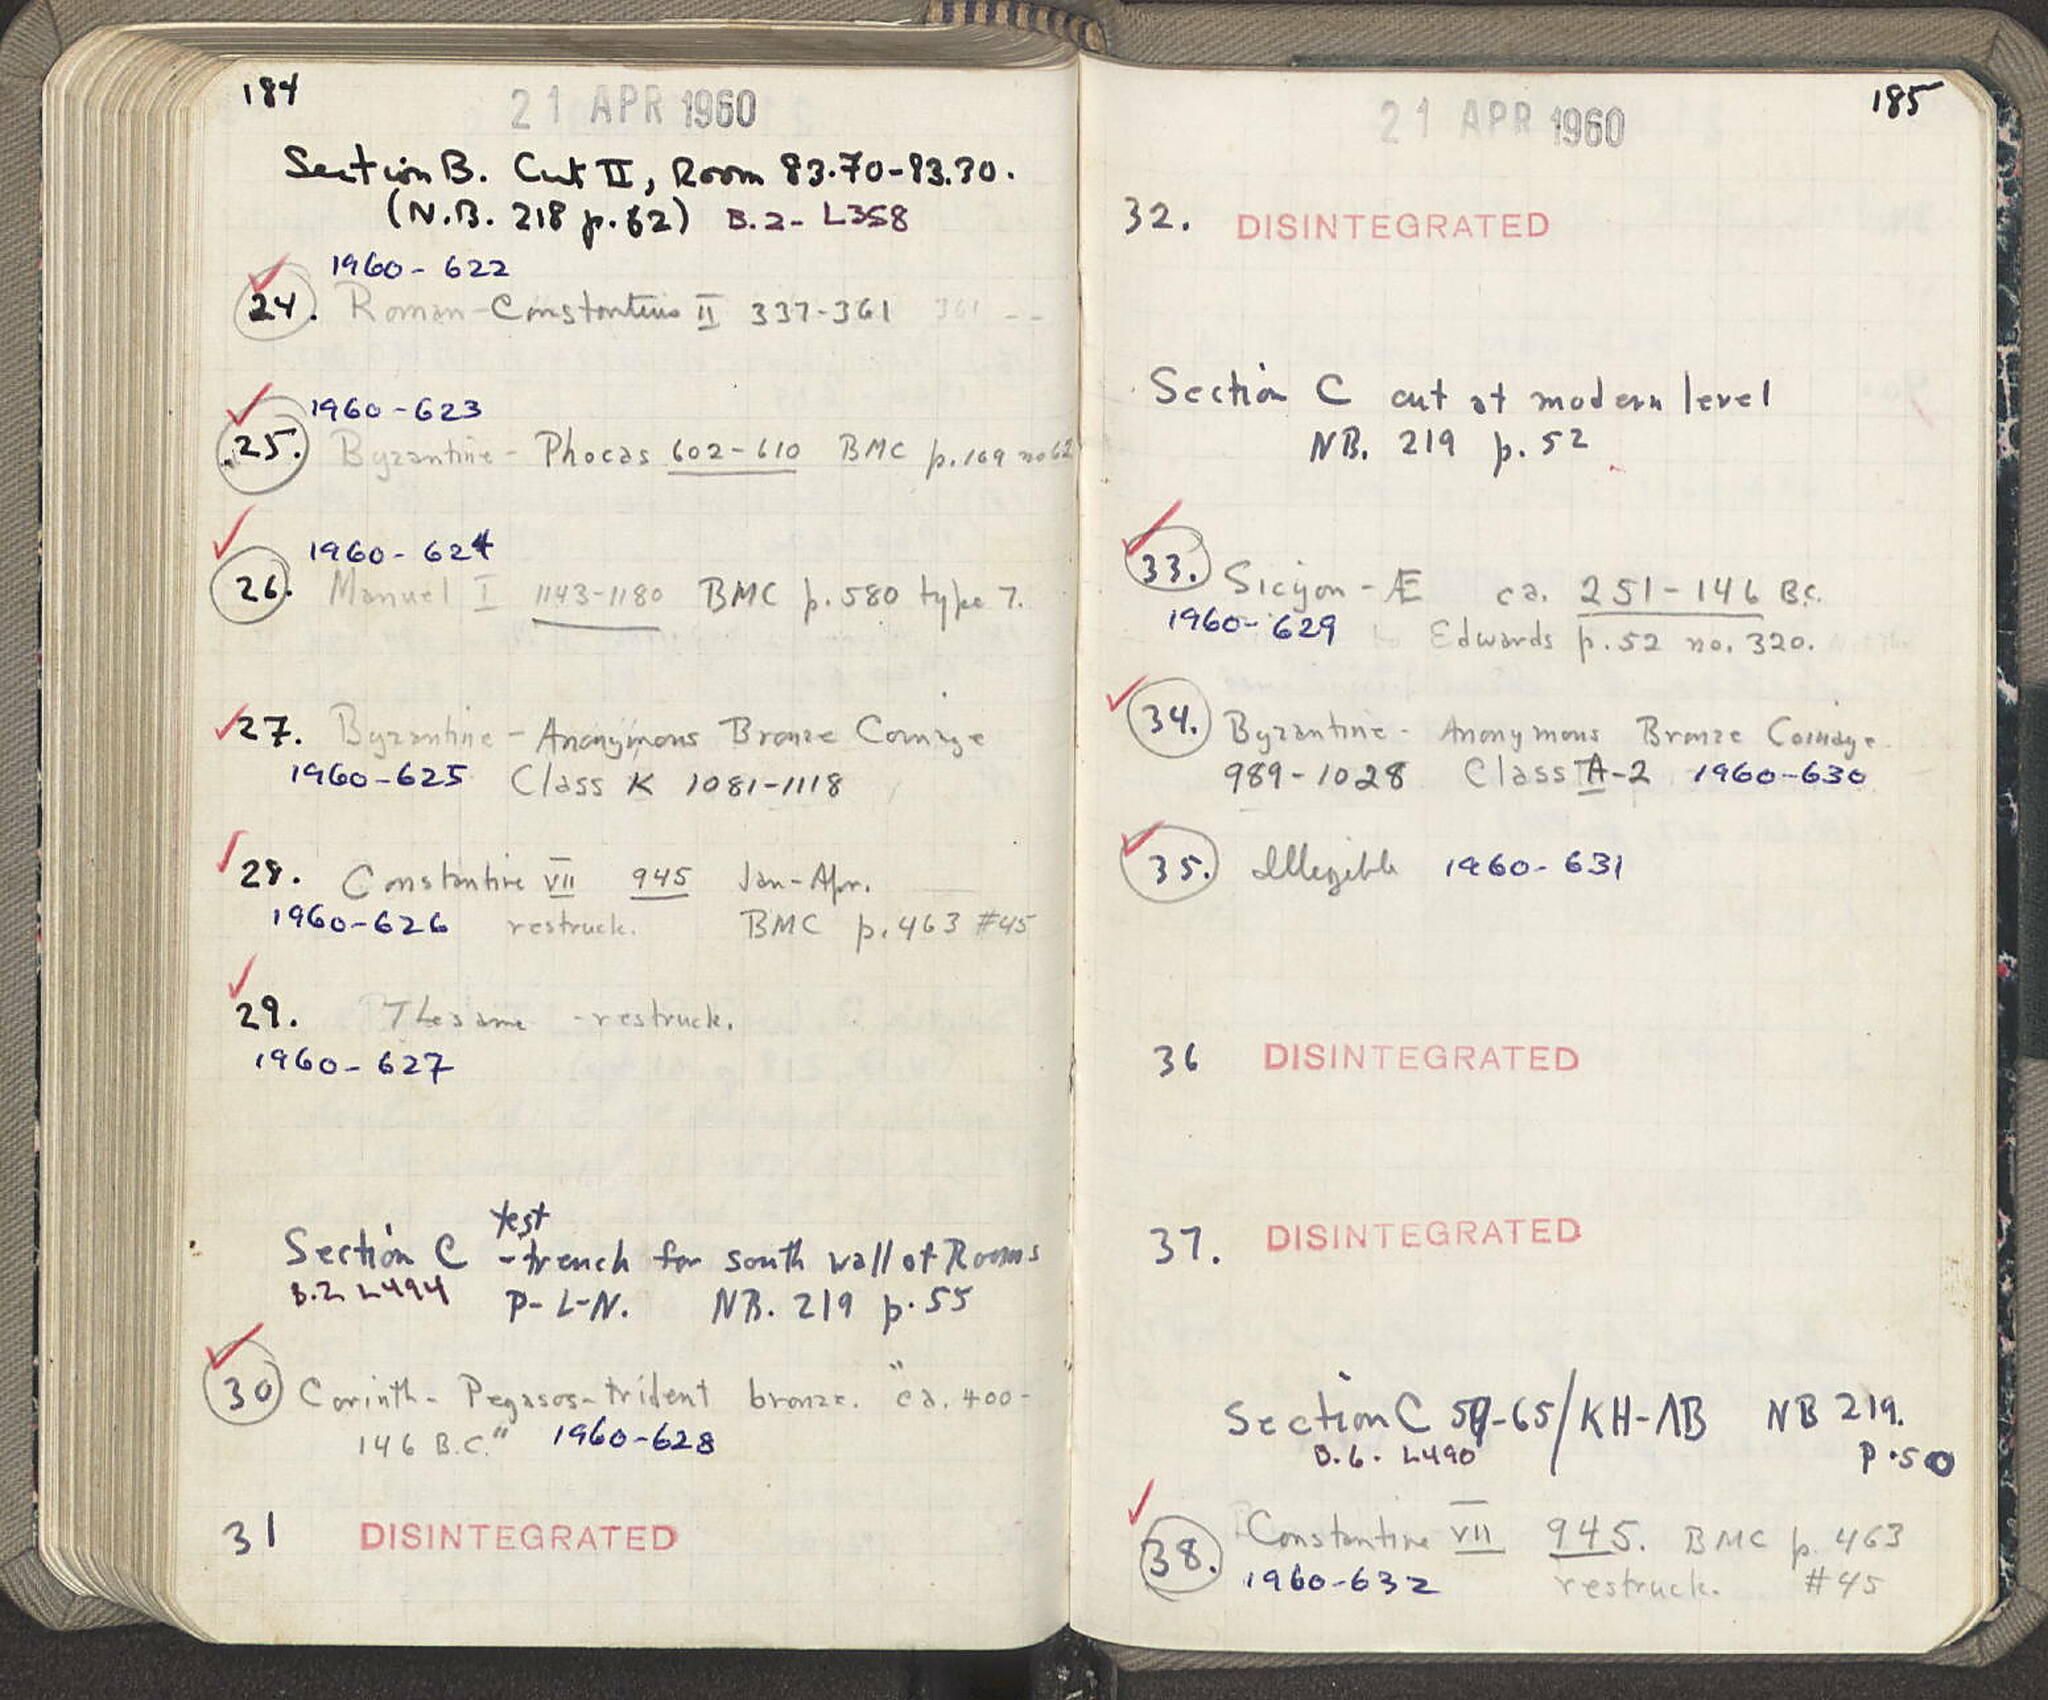 184
21 APR 1960
Section B. Cut II, Room 83.70-83.30.
(N.B. 218 p. 62) B.2- L358
1960-622
24. Roman-Constantius II 337-361 361
1960-623
25. Byzantine- Phocas 602-610 BMC p.169 no 62
1960-624
26. Manuel I 1143-1180 BMC p.580 type 7.
27. Byzantine - Anonymous Bronze Coinage
1960-625 Class K 1081-1118
28. Constantine VII 945 Jan-Apr.
1960-626 restruck. BMC p.463 #45
29. The same - restruck.
1960-627
test
Section C -trench for south wall of Rooms
B.2 L494 P-L-N. NB. 219 p.55
30 Corinth- Pegasos-trident bronze. "ca. 400-
146 B.C." 1960-628
31 DISINTEGRATED
185
21 APR 1960
32. DISINTEGRATED
Section C cut at modern level
NB. 219 p. 52
33. Sicyon - Æ ca. 251-146 B.C.
1960-629 Edwards p.52 no. 320.
34. Byzantine- Anonymous Bronze Coinage
989-1028 Class A-2 1960-630
35. Illegible 1960-631
36 DISINTEGRATED
37. DISINTEGRATED
Section C 59-65/KH-ΛB NB 219.
B.6. L490 P.50
38. Constantine VII 945. BMC p. 463
1960-632 restruck. #45